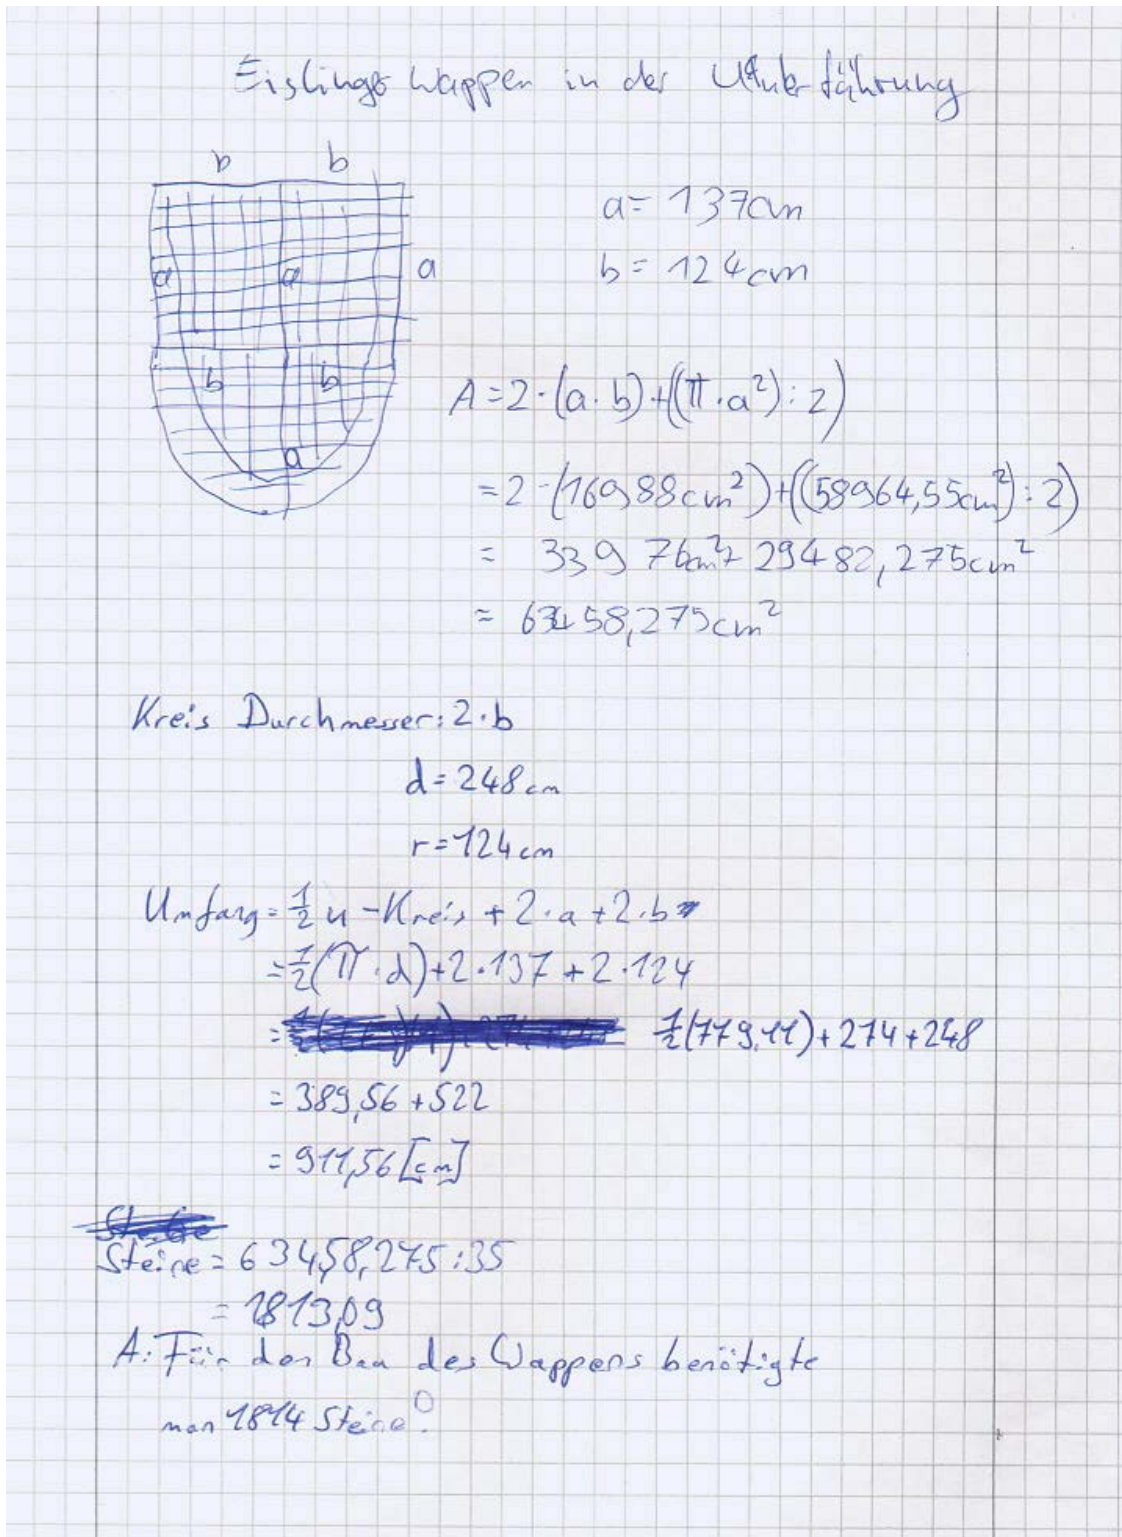 Eislinger Wappen in der Unterführung
b b
a = 137cm
b = 124cm
a a a
b b
a
A = 2·(a·b)+((π·a²):2)
= 2·(16988cm²)+((58964,55cm²):2)
= 33976cm²+ 29482,275cm²
= 63458,275cm²
Kreis Durchmesser: 2·b
d = 248cm
r = 124cm
Umfang = 1/2 u -Kreis + 2·a + 2·b
= 1/2(π·d)+2·137 + 2·124
= 1/2(779,11)+274+248
= 389,56 + 522
= 911,56 [cm]
Steine = 63458,275 : 35
= 1813,09
A: Für den Bau des Wappens benötigte
man 1814 Steine.